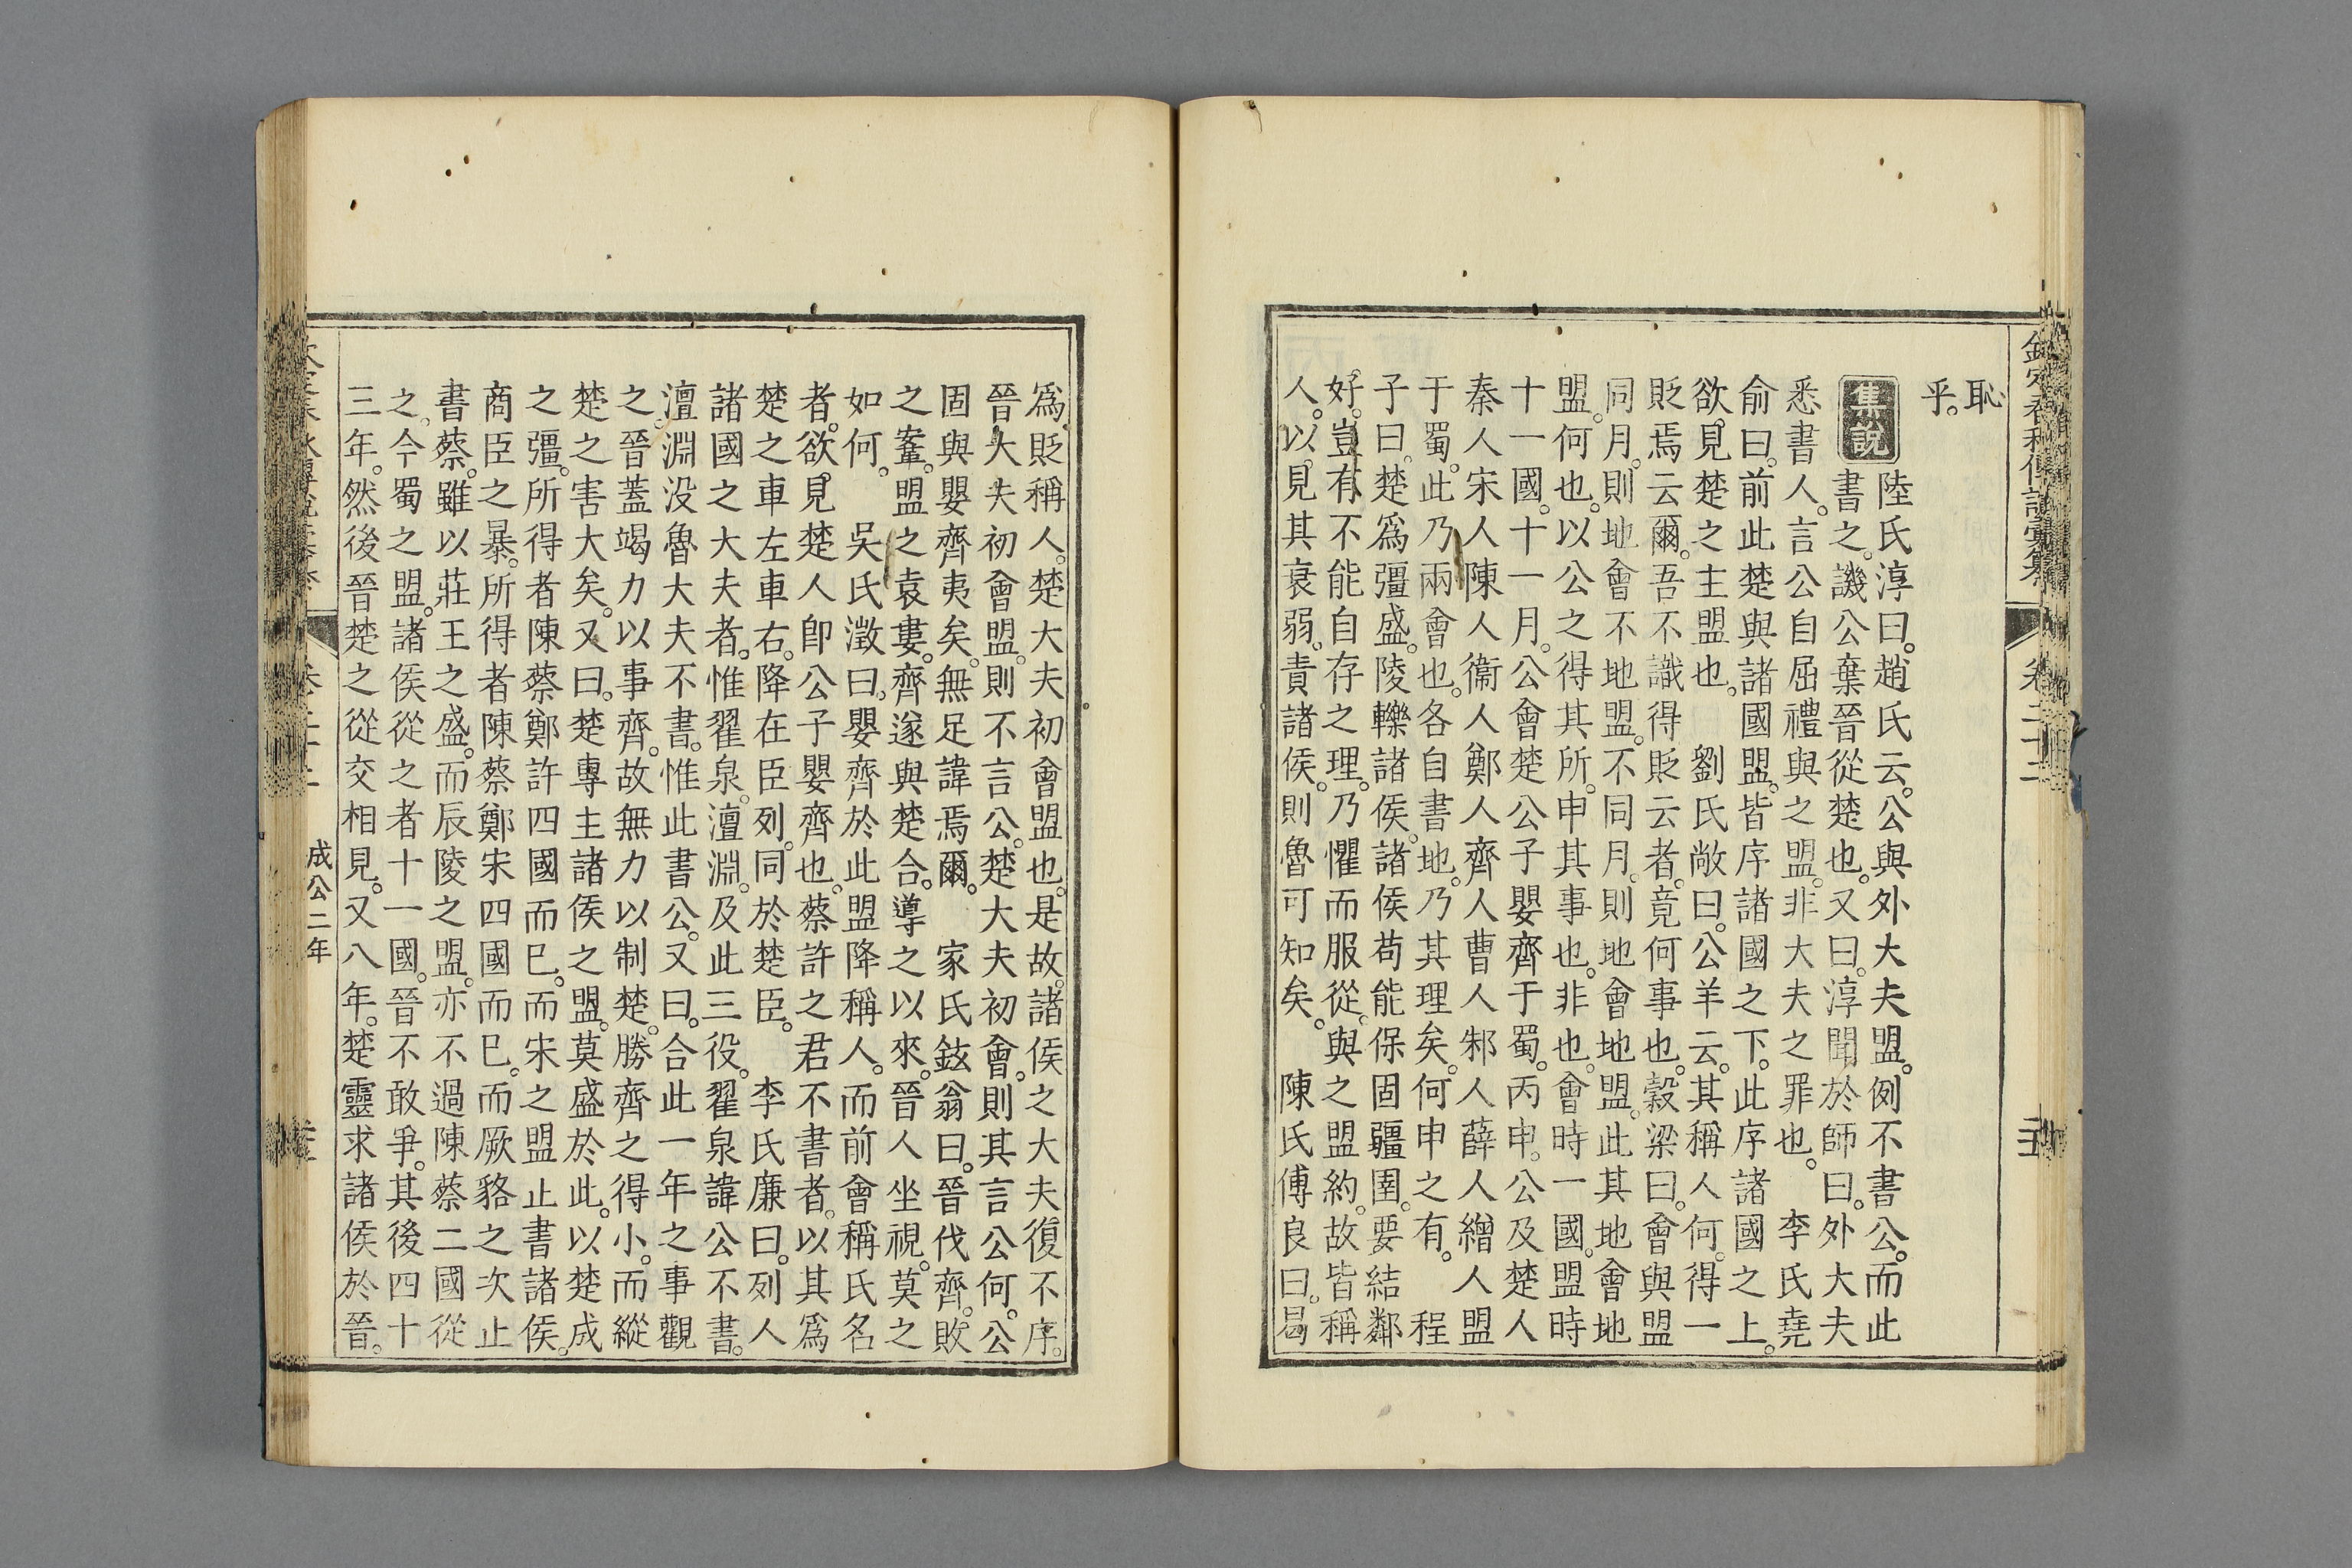 恥
乎。
集說
陸氏淳曰。趙氏云。公與外大夫盟。例不書公。而此
書之。譏公棄晉從楚也。又曰。淳聞於師曰。外大夫
悉書人。言公自屈禮與之盟。非大夫之罪也。李氏堯
俞曰。前此楚與諸國盟。皆序諸國之下。此序諸國之上。
欲見楚之主盟也。劉氏敞曰。公羊云。其稱人何。得一
貶焉云爾。吾不識得貶云者。竟何事也。穀梁曰。會與盟
同月。則地會不地盟。不同月。則地會地盟。此其地會地
盟。何也。以公之得其所。申其事也。非也。會時一國。盟時
十一國。十一月。公會楚公子嬰齊于蜀。丙申。公及楚人
秦人宋人陳人衞人鄭人齊人曹人邾人薛人繒人盟
于蜀。此乃兩會也。各自書地。乃其理矣。何申之有。程
子曰。楚爲彊盛。陵轢諸侯。諸侯苟能保固疆圉。要結鄰
好。豈有不能自存之理。乃懼而服從。與之盟約。故皆稱
人。以見其衰弱。責諸侯。則魯可知矣。陳氏傅良曰。曷
爲貶稱人。楚大夫初會盟也。是故諸侯之大夫復不序。
晉大夫初會盟。則不言公。楚大夫初會。則其言公何。公
固與嬰齊夷矣。無足諱焉爾。家氏鉉翁曰。晉伐齊。敗
之鞌。盟之袁婁。齊遂與楚合。導之以來。晉人坐視。莫之
如何。吳氏澂曰。嬰齊於此盟降稱人。而前會稱氏名
者。欲見楚人卽公子嬰齊也。蔡許之君不書者。以其爲
楚之車左車右。降在臣列。同於楚臣。李氏廉曰。列人
諸國之大夫者。惟翟泉。澶淵。及此三役。翟泉諱公不書。
澶淵没魯大夫不書。惟此書公。又曰。合此一年之事觀
之。晉蓋竭力以事齊。故無力以制楚。勝齊之得小。而縱
楚之害大矣。又曰。楚專主諸侯之盟。莫盛於此。以楚成
之彊。所得者陳蔡鄭許四國而巳。而宋之盟止書諸侯。
商臣之暴。所得者陳蔡鄭宋四國而巳。而厥貉之次止
書蔡。雖以莊王之盛。而辰陵之盟。亦不過陳蔡二國從
之。今蜀之盟。諸侯從之者十一國。晉不敢爭。其後四十
三年。然後晉楚之從交相見。又八年。楚靈求諸侯於晉。
成公二年